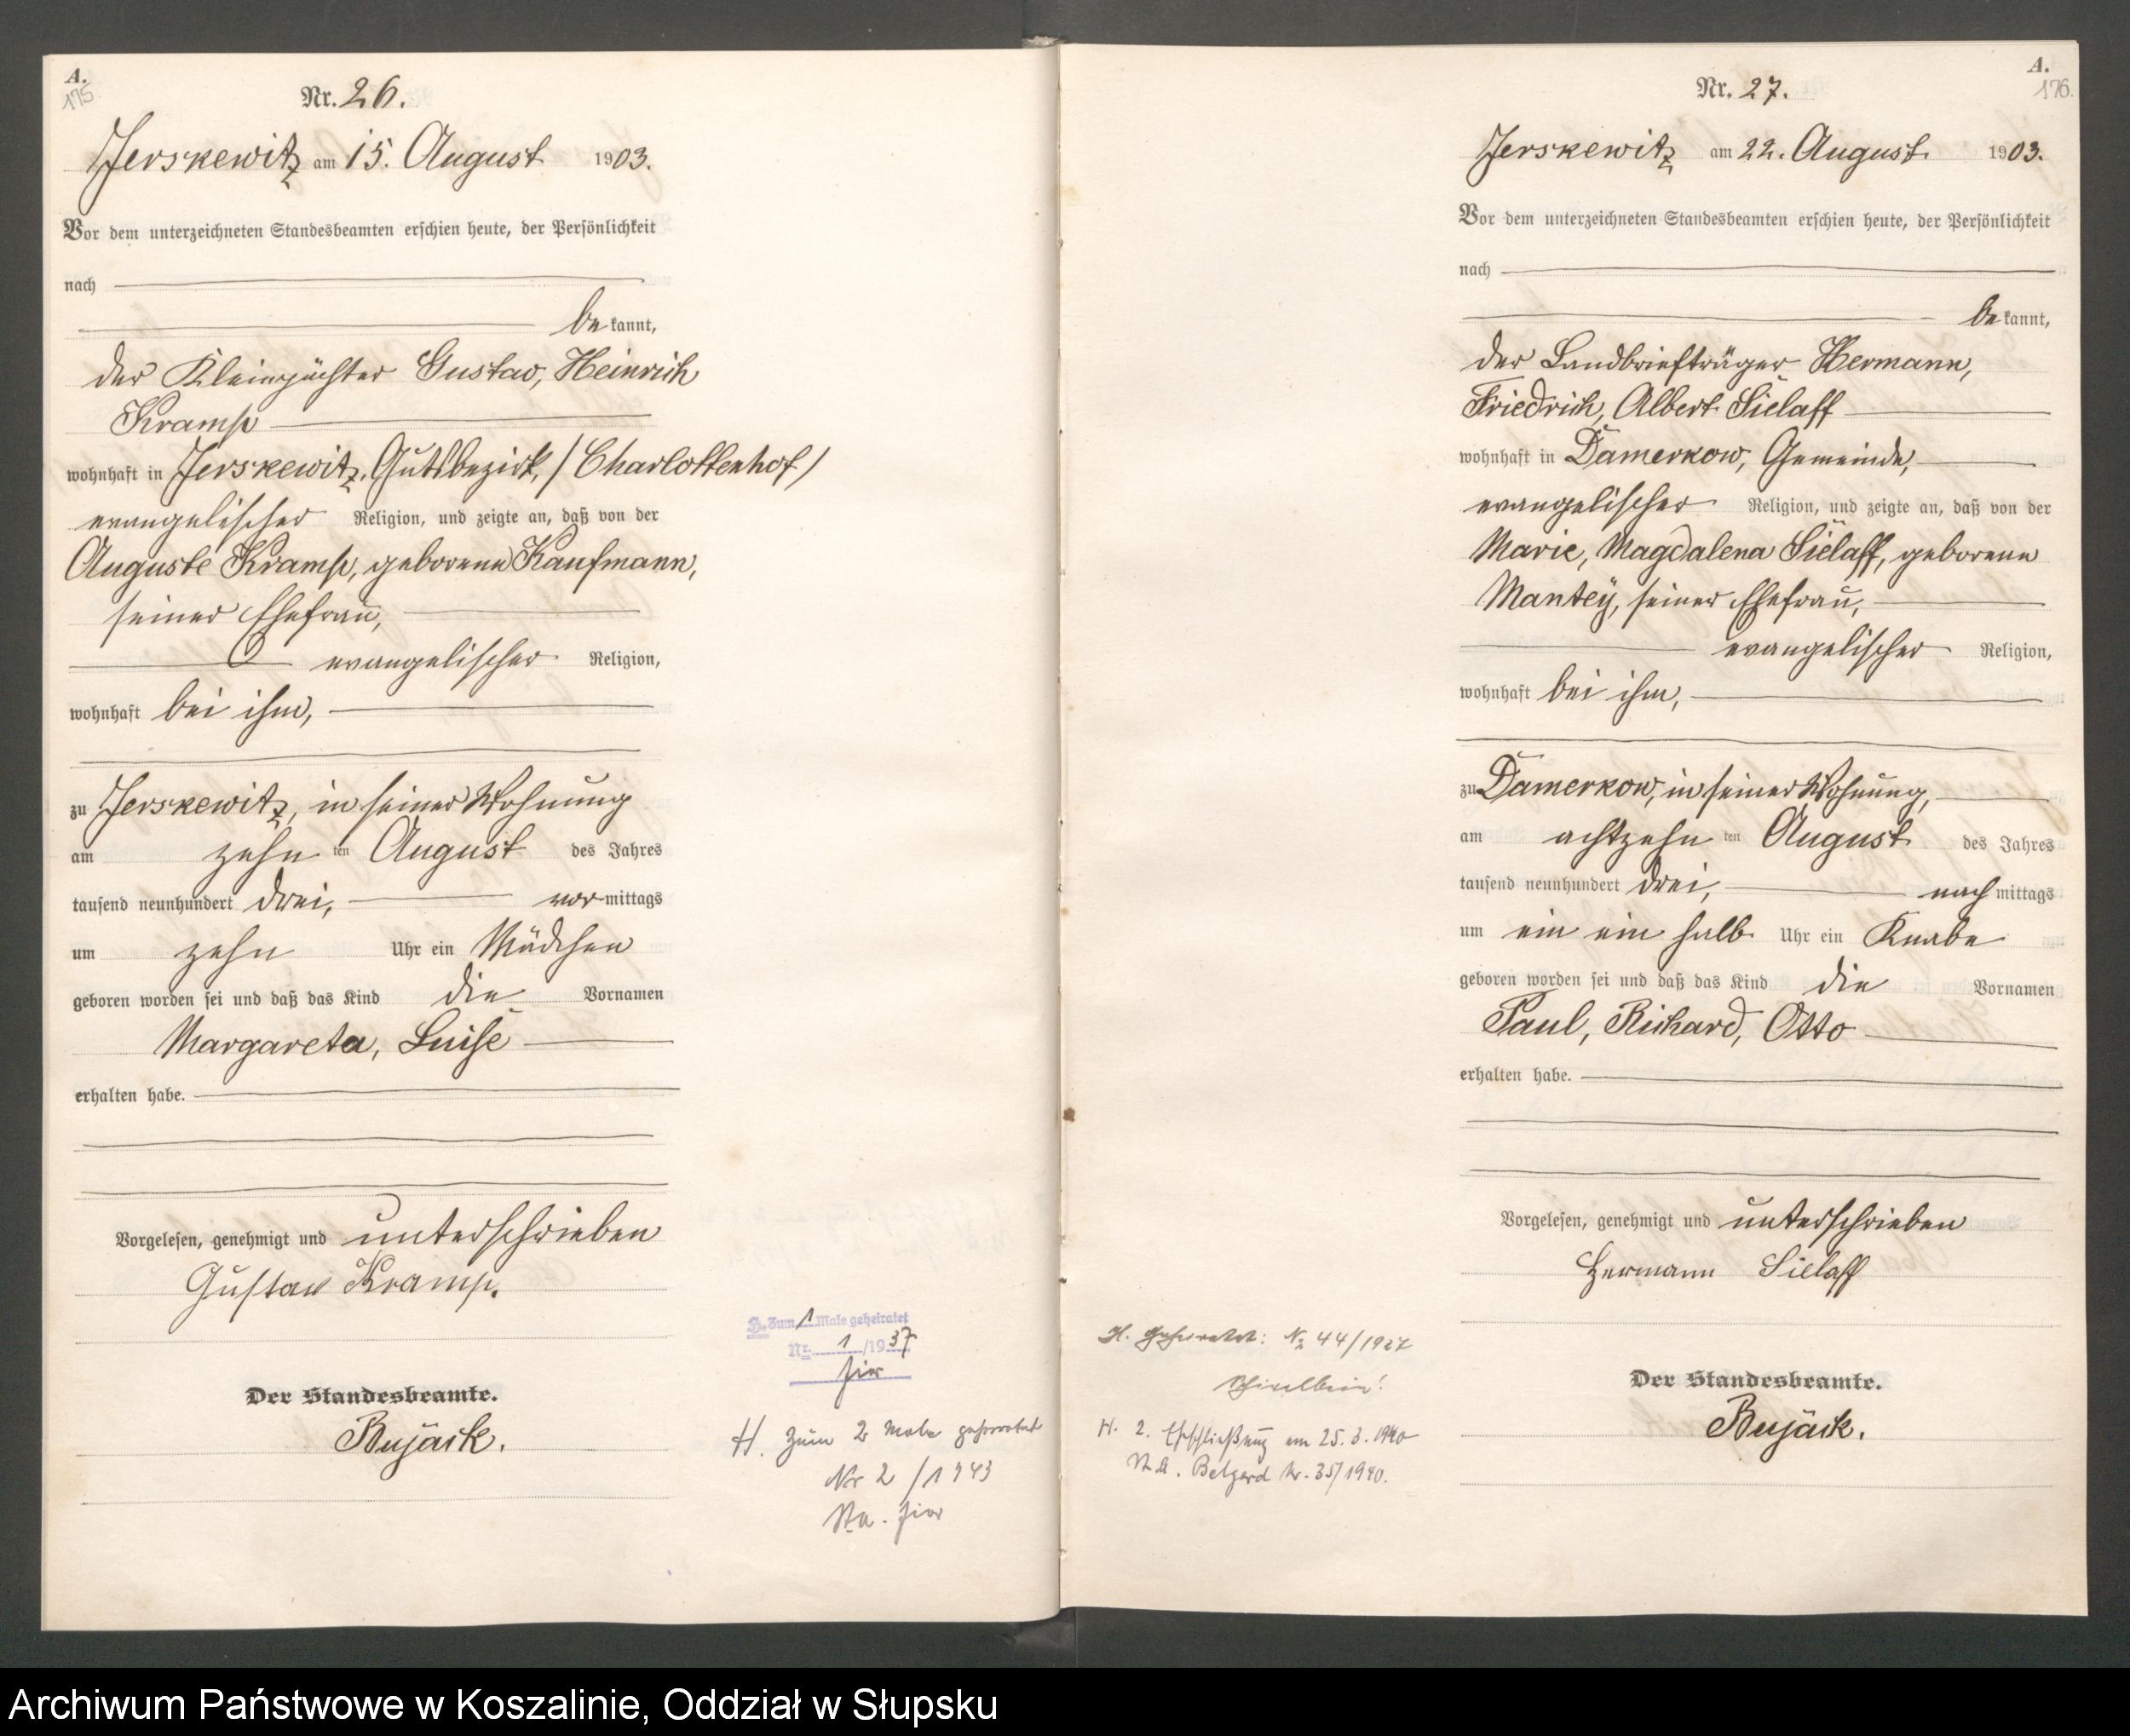 A.
175
Nr. 26.
Jerskewitz am 15. August 1903.
Vor dem unterzeichneten Standesbeamten erschien heute, der Persönlichkeit
nach
bekannt,
der Kleinpächter Gustav, Heinrich
Kramp
wohnhaft in Jerskewitz, Gutsbezirk, / Charlottenhof /
evangelischer Religion, und zeigte an, daß von der
Auguste Kramp, geborenen Kaufmann,
seiner Ehefrau,
evangelischer Religion,
wohnhaft bei ihm,
zu Jerskewitz, in seiner Wohnung
am zehnten August des Jahres
tausend neunhundert drei, vormittags
um zehn Uhr ein Mädchen
geboren worden sei und daß das Kind die Vornamen
Margareta, Luise
erhalten habe.
Vorgelesen, genehmigt und unterschrieben
Gustav Kramp.
Der Standesbeamte.
Bujack.
H. Zum 1 Male geheiratet
Nr. 1/1937
hier
H. Zum 2 Male geheiratet
Nr 2/1943
St.A. hier
A.
176.
Nr. 27.
Jerskewitz am 22. August 1903.
Vor dem unterzeichneten Standesbeamten erschien heute, der Persönlichkeit
nach
bekannt,
der Landbriefträger Hermann,
Friedrich, Albert Sielaff
wohnhaft in Damerkow, Gemeinde,
evangelischer Religion, und zeigte an, daß von der
Marie, Magdalena Sielaff, geborenen
Mantey, seiner Ehefrau,
evangelischer Religion,
wohnhaft bei ihm,
zu Damerkow, in seiner Wohnung,
am achtzehnten August des Jahres
tausend neunhundert drei, nachmittags
um ein ein halb Uhr ein Knabe
geboren worden sei und daß das Kind die Vornamen
Paul, Richard, Otto
erhalten habe.
Vorgelesen, genehmigt und unterschrieben
Hermann Sielaff
Der Standesbeamte.
Bujack.
H. Geheiratet: No 44/1927
Schivelbein!
H. 2. Eheschließung am 25.3.1940
St.A. Belgard Nr. 35/1940.
Archiwum Państwowe w Koszalinie, Oddział w Słupsku